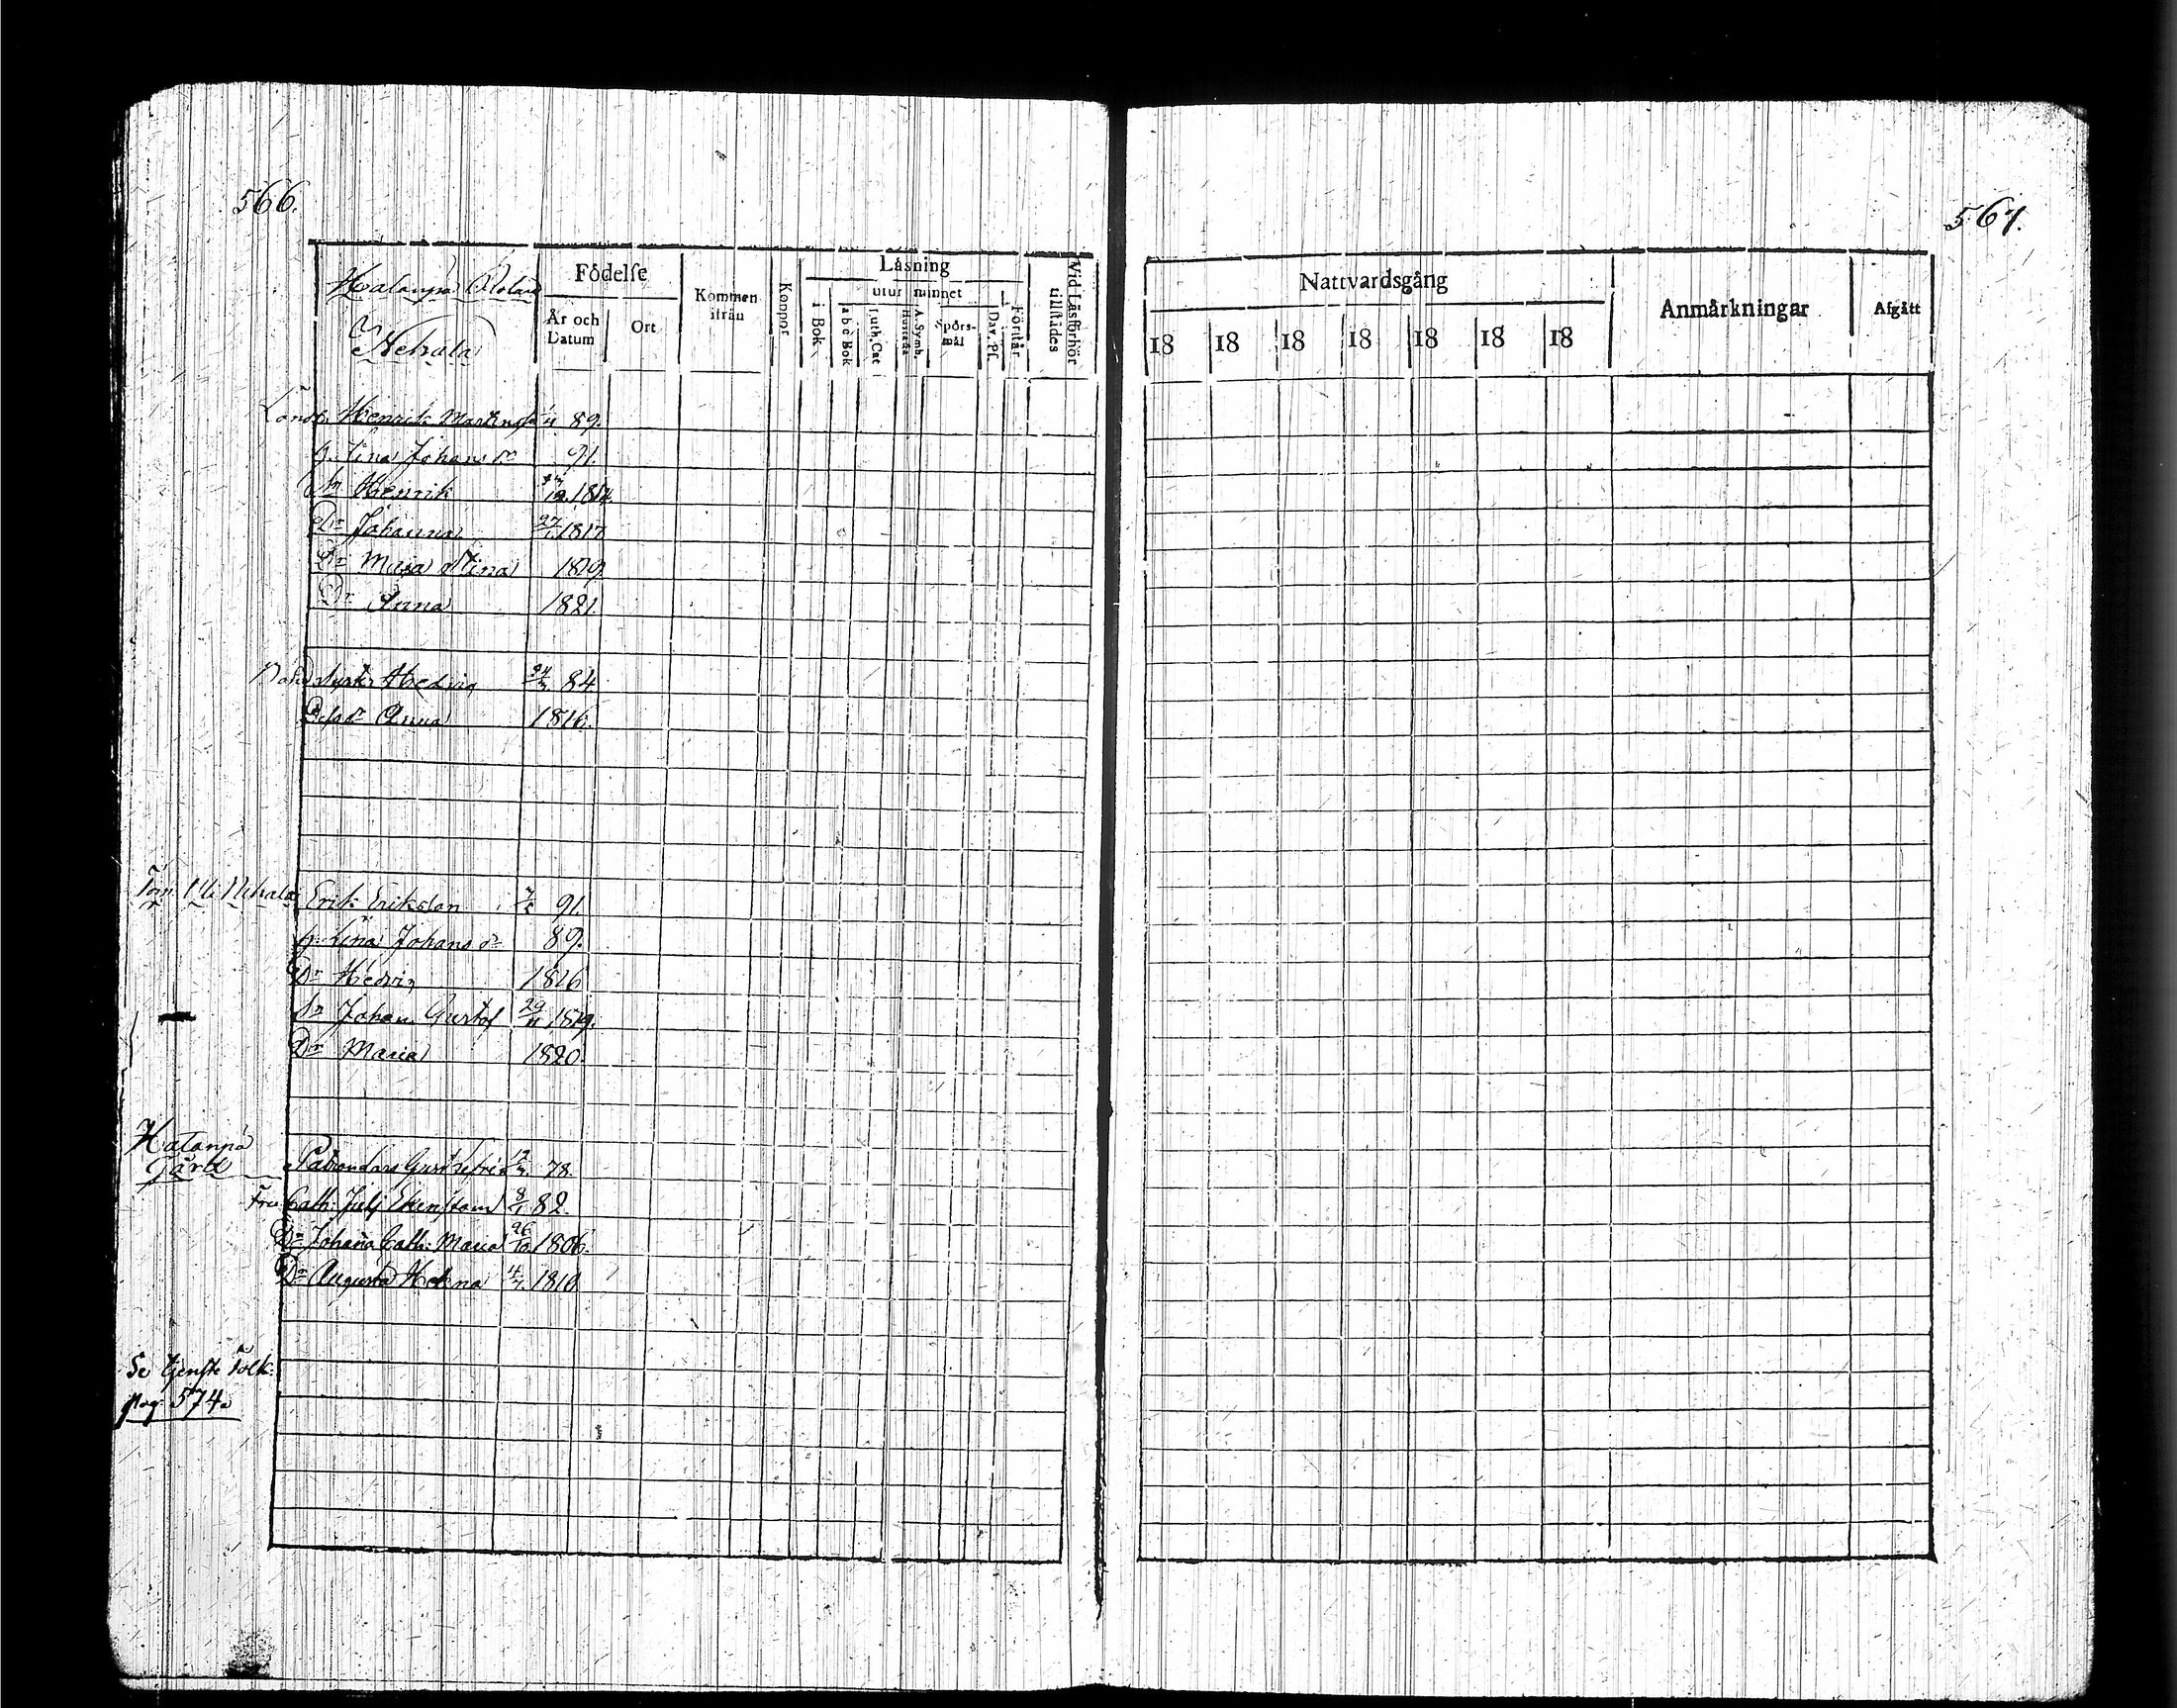 566.
Hatanpä
Nehala
Födelse
År och Datum
Ort
Kommen ifrån
Koppor
Läsning
i Bok
utur minnet
a b c Bok
Luth. Cat
A. Symb. Hustafla
Spörs-mål
Dav. Ps.
Förstår
Vid Läsförhör tillstädes
Henrik Martinss 89.
h. Lina Johans dr 91.
Sn Henrik 1814.
Dr Johanna 27/1 1817
Dr Maja Stina 1819.
Dr Anna 1821.
Hedvig 84
Dess dr Anna 1816.
Nehala Erik Erikson 91.
h. Lina Johans dr 89.
Dr Hedvig 1816
Sn Johan Gustof 29/11 1819.
Dr Maria 1820.
Hatanpä
Gård
Patron Lars Gust 78.
Fru Cath: Julj Ekenstam 8/1 82.
Dr Johana Cath: Maria 26/10 1806.
Dr Augusta Helena 4/7. 1810
Se tjenste Folk:
pag: 574.
567.
Nattvardsgång
18 18 18 18 18 18 18
Anmärkningar
Afgått